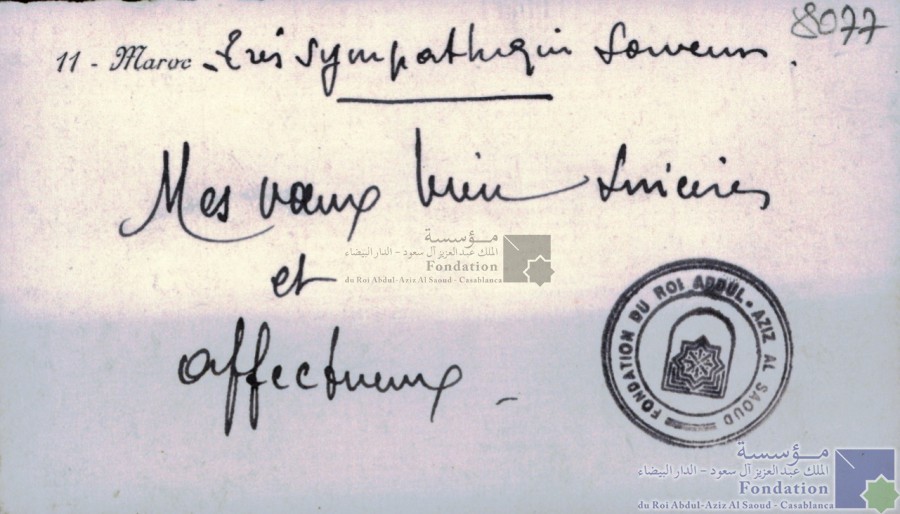 8077
11 - Maroc - Très sympathique souvenir.
Mes vœux bien sincères
et
affectueux -
مؤسسة
الملك عبد العزيز آل سعود - الدار البيضاء
Fondation
du Roi Abdul-Aziz Al Saoud - Casablanca
FONDATION DU ROI ABDUL-AZIZ AL SAOUD
مؤسسة
الملك عبد العزيز آل سعود - الدار البيضاء
Fondation
du Roi Abdul-Aziz Al Saoud - Casablanca